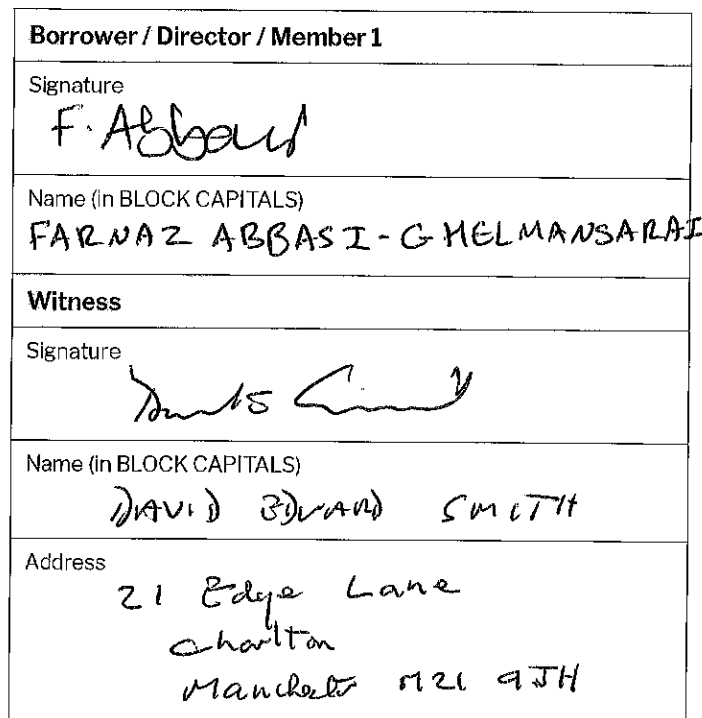 Borrower / Director / Member 1
Signature
F. Abbasi
Name (in BLOCK CAPITALS)
FARNAZ ABBASI-GHELMANSARAI
Witness
Signature
Name (in BLOCK CAPITALS)
DAVID EDWARD SMITH
Address
21 Edge Lane
Chorlton
Manchester M21 9JH